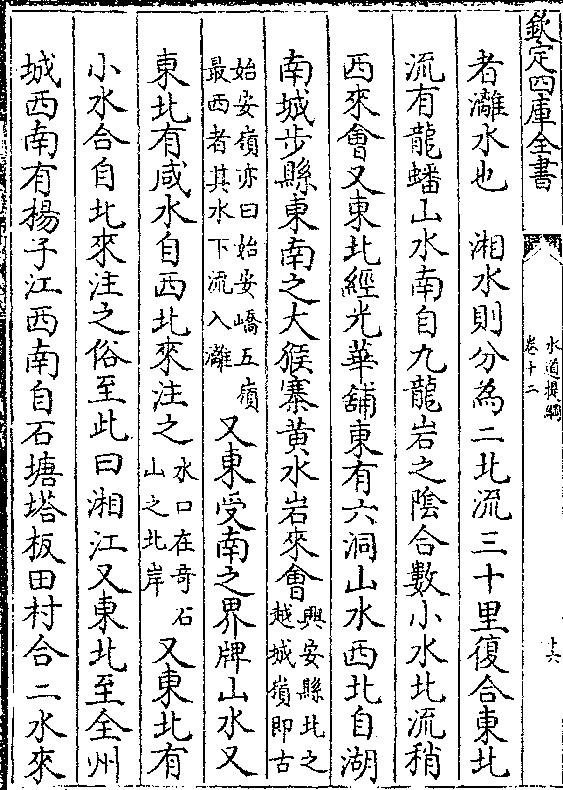 欽定四庫全書
水道提綱
卷十二
十六
者灕水也　湘水則分為二北流三十里復合東北
流有龍蟠山水南自九龍岩之陰合數小水北流稍
西來會又東北經光華舖東有六洞山水西北自湖
南城步縣東南之大猴寨黃水岩來會興安縣北之越城嶺即古
始安嶺亦曰始安嶠五嶺最西者其水下流入灕又東受南之界牌山水又
東北有咸水自西北來注之水口在奇石山之北岸又東北有
小水合自北來注之俗至此曰湘江又東北至全州
城西南有楊子江西南自石塘塔板田村合二水來